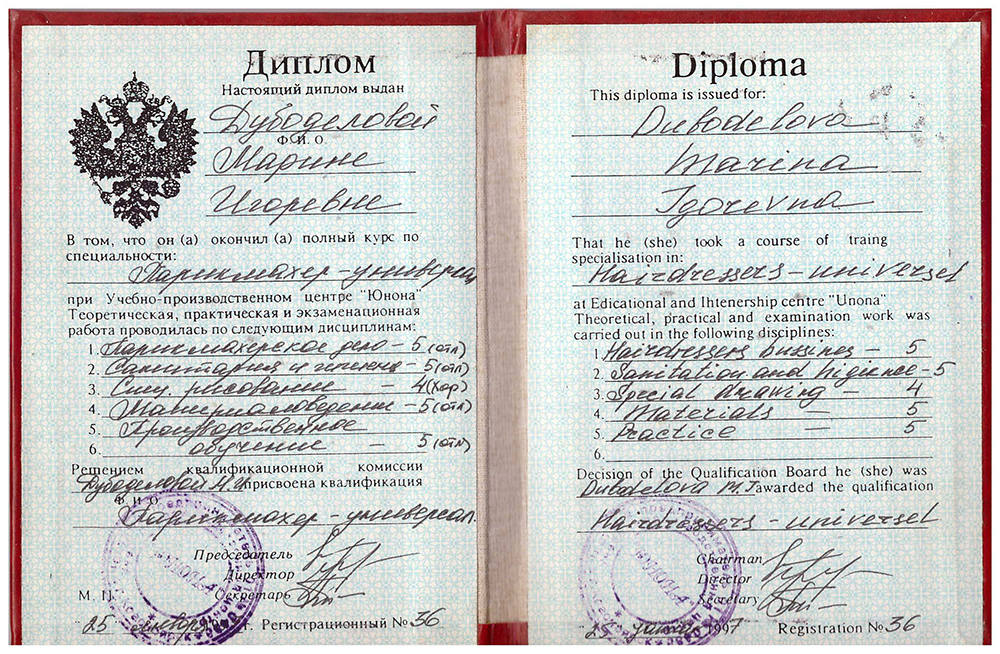 Диплом
Настоящий диплом выдан
Дубоделовой
Ф.И.О
Марине
Игоревне
В том, что он (а) окончил (а) полный курс по
специальности:
Парикмахер-универсал
при Учебно-производственном центре "Юнона"
Теоретическая, практическая и экзаменационная
работа проводилась по следующим дисциплинам:
1. Парикмахерское дело - 5 (отл)
2. Санитария и гигиена - 5 (отл)
3. Спец. рисование - 4 (хор)
4. Материаловедение - 5 (отл)
5. Производственное
6. обучение - 5 (отл)
Решением квалификационной комиссии
Дубоделовой М.И. присвоена квалификация
Ф И О
Парикмахер-универсал
Председатель
Директор
М. П. Секретарь
"25 января г. Регистрационный № 36
Diploma
This diploma is issued for:
Dubodelova
Marina
Igorevna
That he (she) took a course of traing
specialisation in:
Hairdressers-universel
at Edicational and Ihtenership centre "Unona"
Theoretical, practical and examination work was
carried out in the following disciplines:
1. Hairdressers bussines - 5
2. Sanitation and higience - 5
3. Special drawing - 4
4. Materials - 5
5. Practice - 5
6.
Decision of the Qualification Board he (she) was
Dubodelova M.I. awarded the qualification
Hairdressers-universel
Chairman
Director
Secretary
"25 1997 Registration № 36